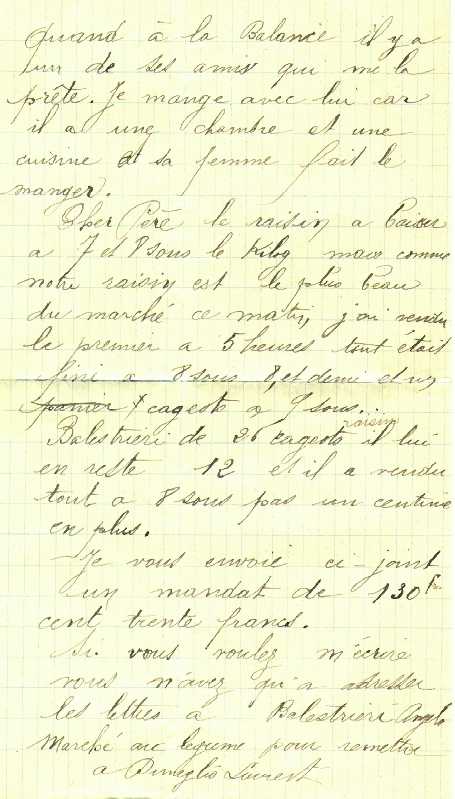 Quand à la Balance il y a
un de ses amis qui me la
prête. Je mange avec lui car
il a une chambre et une
cuisine et sa femme fait le
manger.
Cher Père le raisin a baisser
a 7 et 8 sous le Kilog mais comme
notre raisin est le plus beau
du marché ce matin, j'ai vendu
le premier a 5 heures tout était
fini a 8 sous 8, et demi et un
panier x cageote a 9 sous...
Balestrieri de 26 cageots raisin il lui
en reste 12 et il a vendu
tout a 8 sous pas un centime
en plus.
Je vous envoie ci-joint
un mandat de 130 fr.
cent trente francs.
Si vous voulez m'écrire
vous n'avez qu'a adresser
les lettres a Balestrieri Ange
Marché aux legume pour remettre
a Laurent